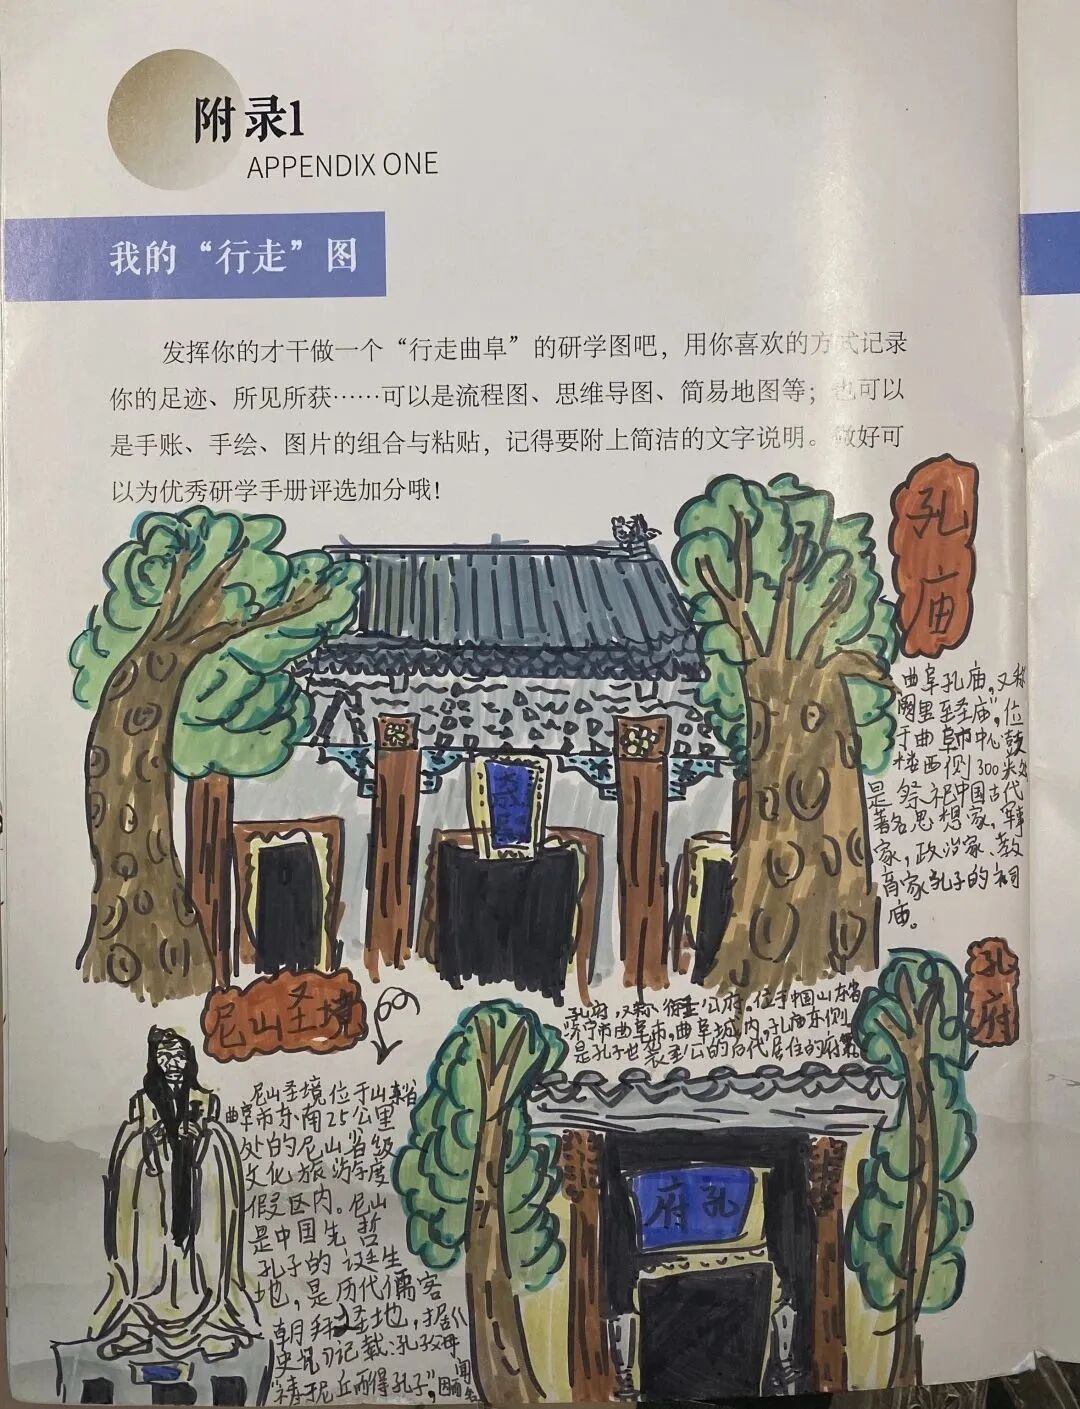 附录1
APPENDIX ONE
我的“行走”图
发挥你的才干做一个“行走曲阜”的研学图吧，用你喜欢的方式记录
你的足迹、所见所获……可以是流程图、思维导图、简易地图等；也可以
是手账、手绘、图片的组合与粘贴，记得要附上简洁的文字说明。做好可
以为优秀研学手册评选加分哦！
孔庙
曲阜孔庙，又称
阙里至圣庙”，位
于曲阜市中心鼓
楼西侧300米处
是祭祀中国古代
著名思想家，军事
家，政治家、教
育家孔子的祠
庙。
孔府
孔府，又称衍圣公府。位于中国山东省
济宁市曲阜市，曲阜城内，孔庙东侧
是孔子世袭圣公的后代居住的府第
孔府
尼山圣境
尼山圣境位于山东省
曲阜市东南25公里
处的尼山省级
文化旅游度
假区内。尼山
是中国先哲
孔子的诞生
地，是历代儒客
朝拜圣地，据《
史记》记载：孔子母
“祷于尼丘而得孔子”，因而闻